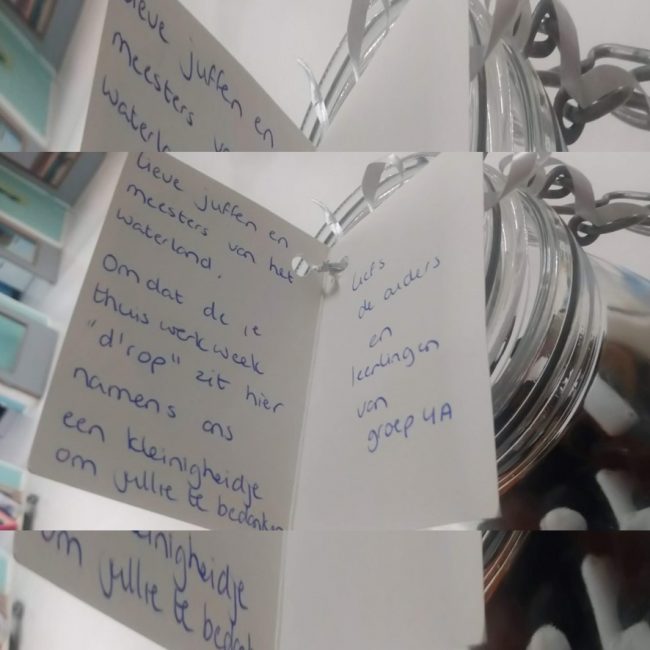 Lieve juffen en
meesters
waterland
Lieve juffen en
meesters van het
waterland.
Omdat de 1e
thuis werkweek
"d'rop" zit hier
namens ons
een kleinigheidje
om jullie te bedanken
liefs
de ouders
en
leerlingen
van
groep 4A
kleinigheidje
om jullie te